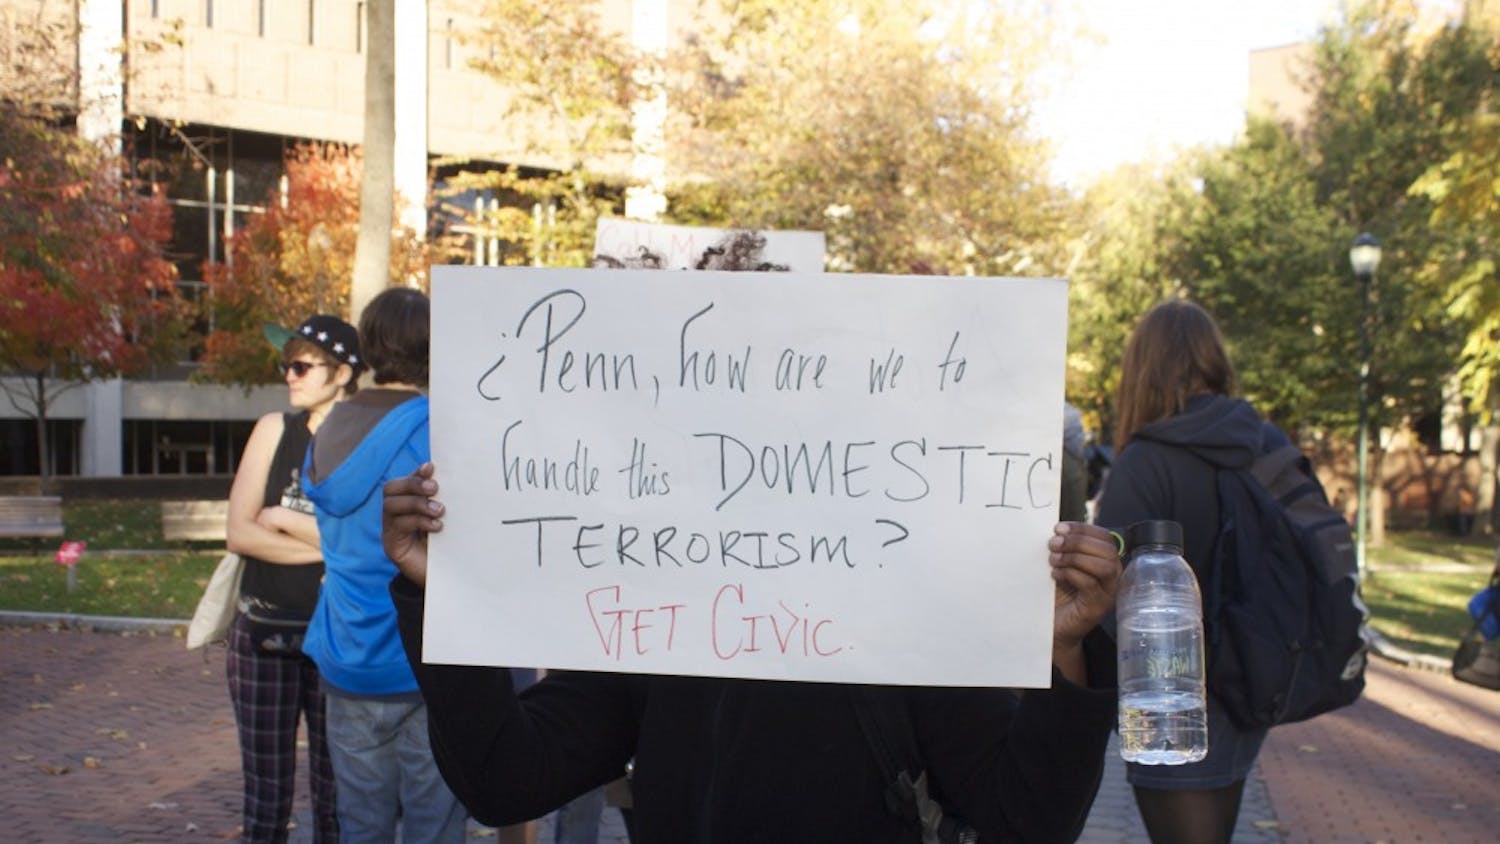 Call M
¿Penn, how are we to
handle this DOMESTIC
TERRORISM?
GET CIViC.
WASTE